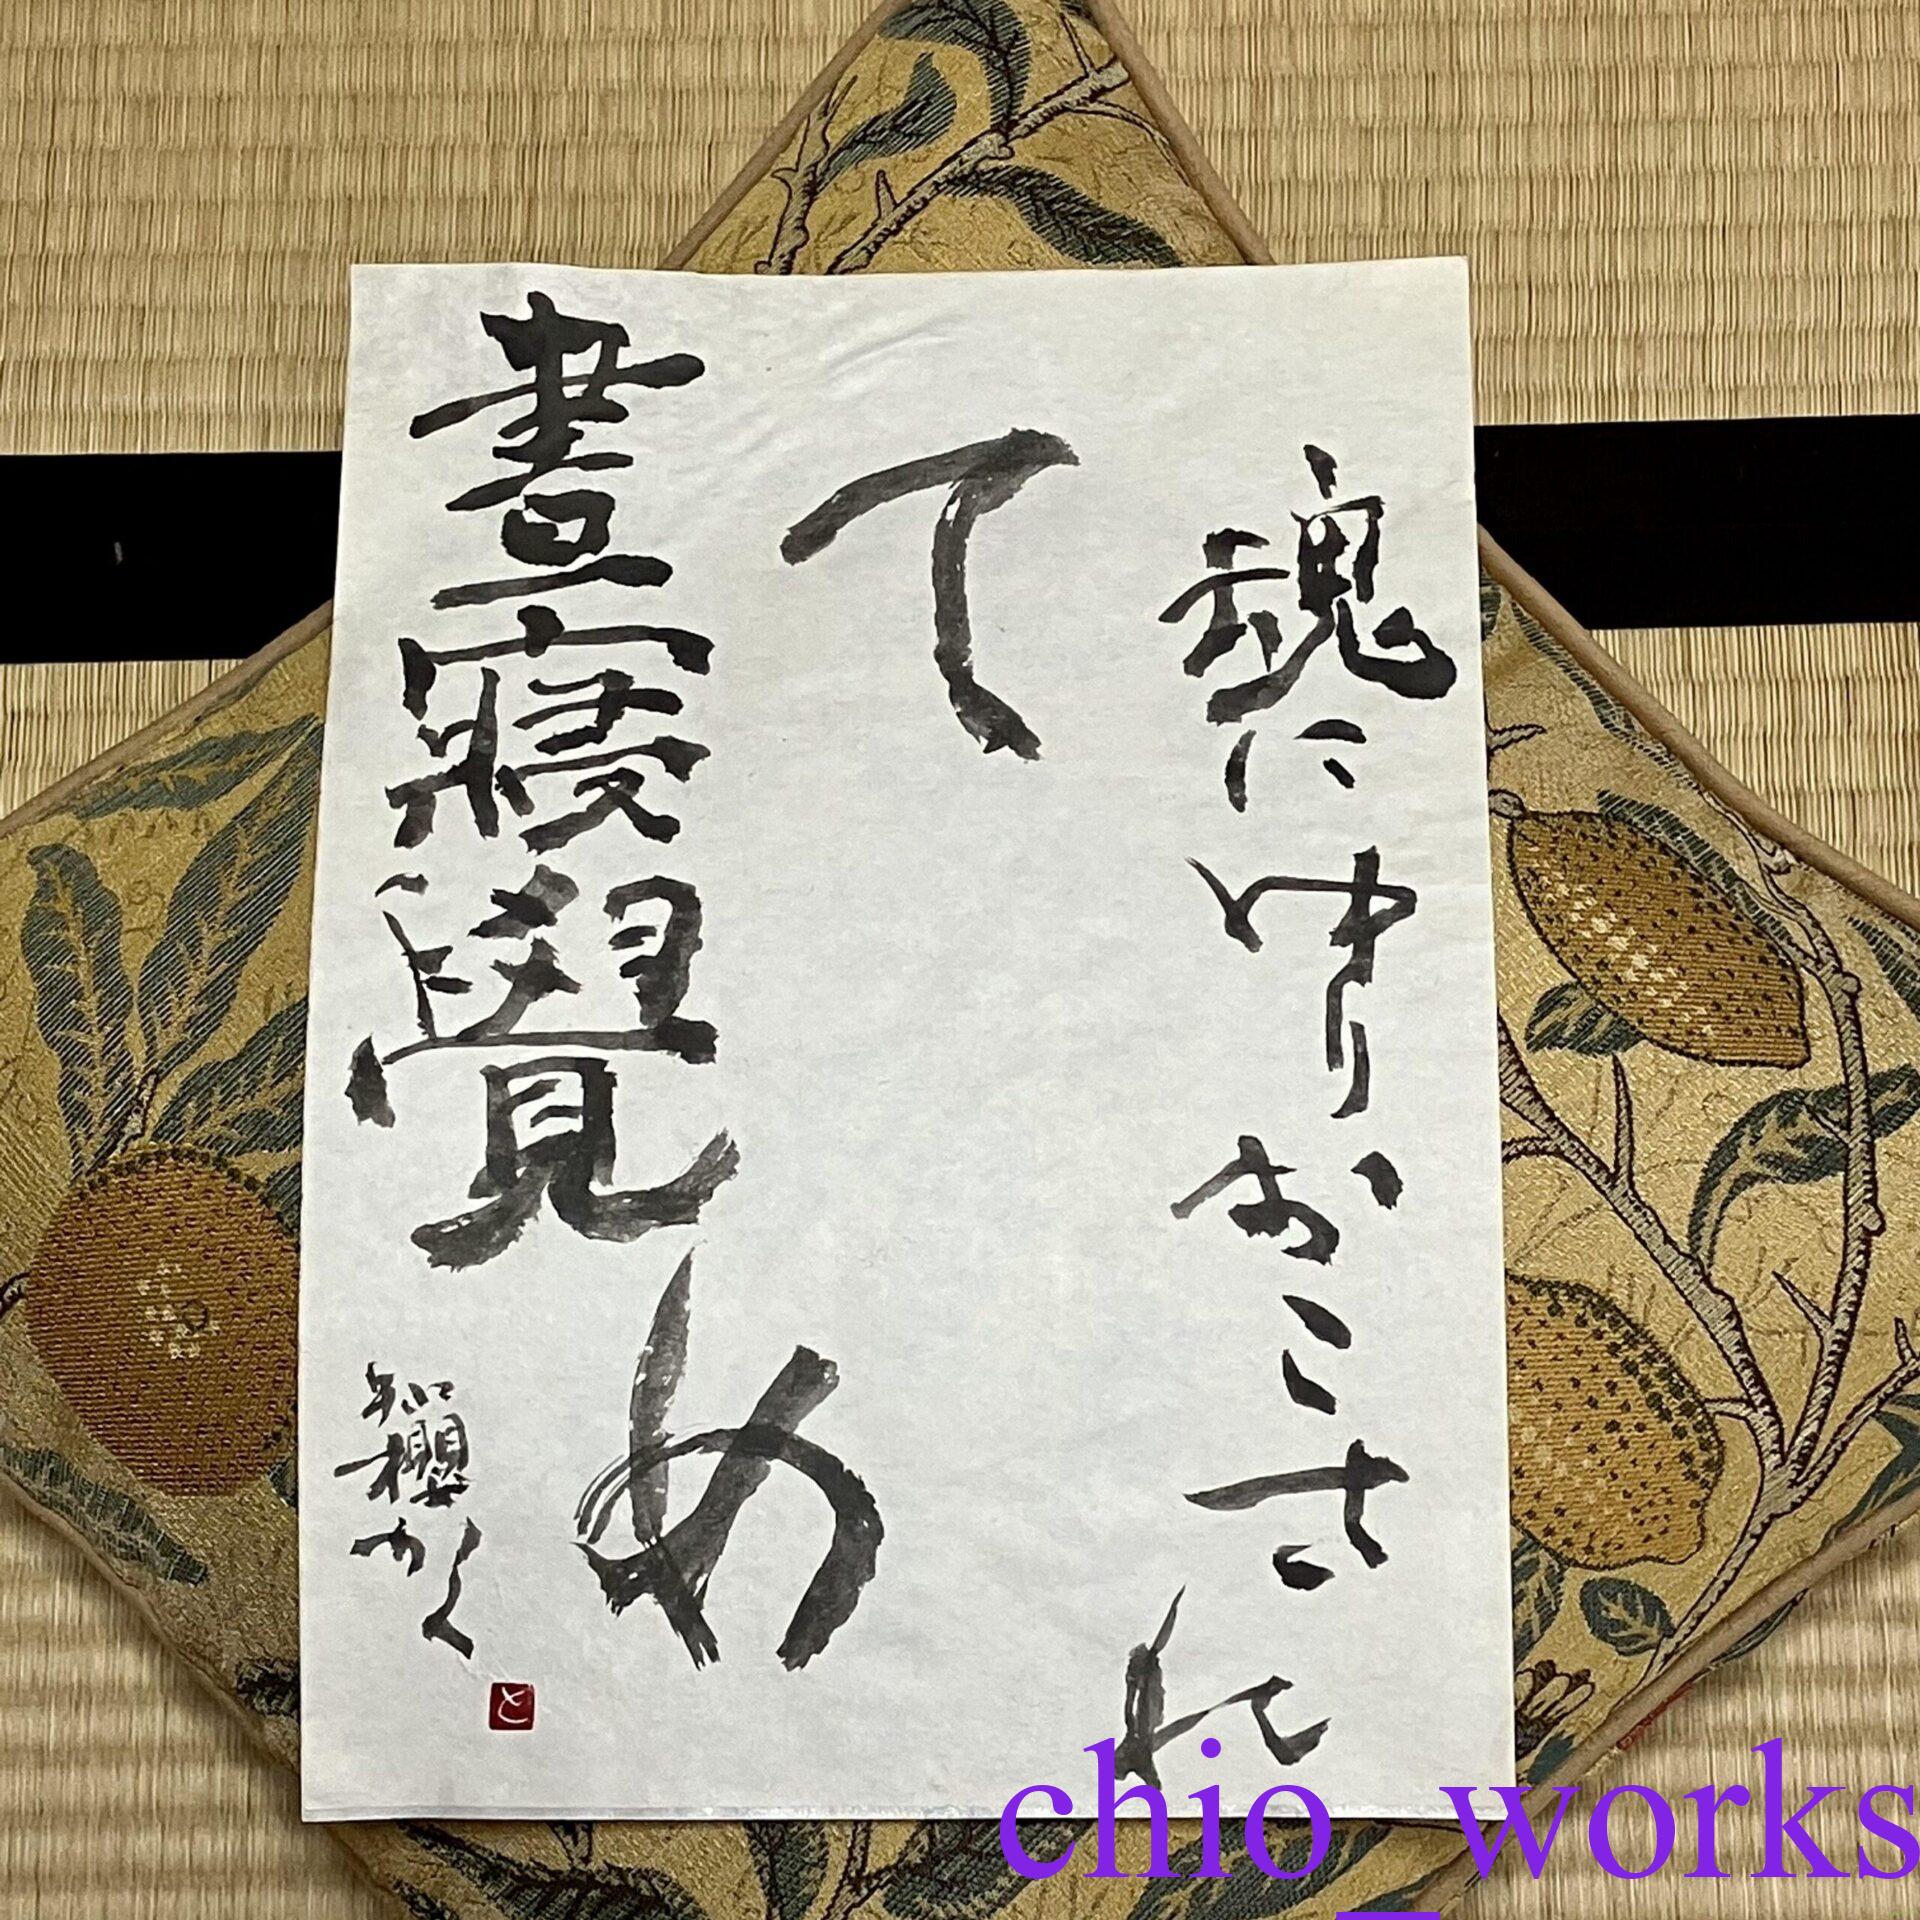 魂にゆりおこされ
て
晝寢覺め
知櫻かく
と
chio_works